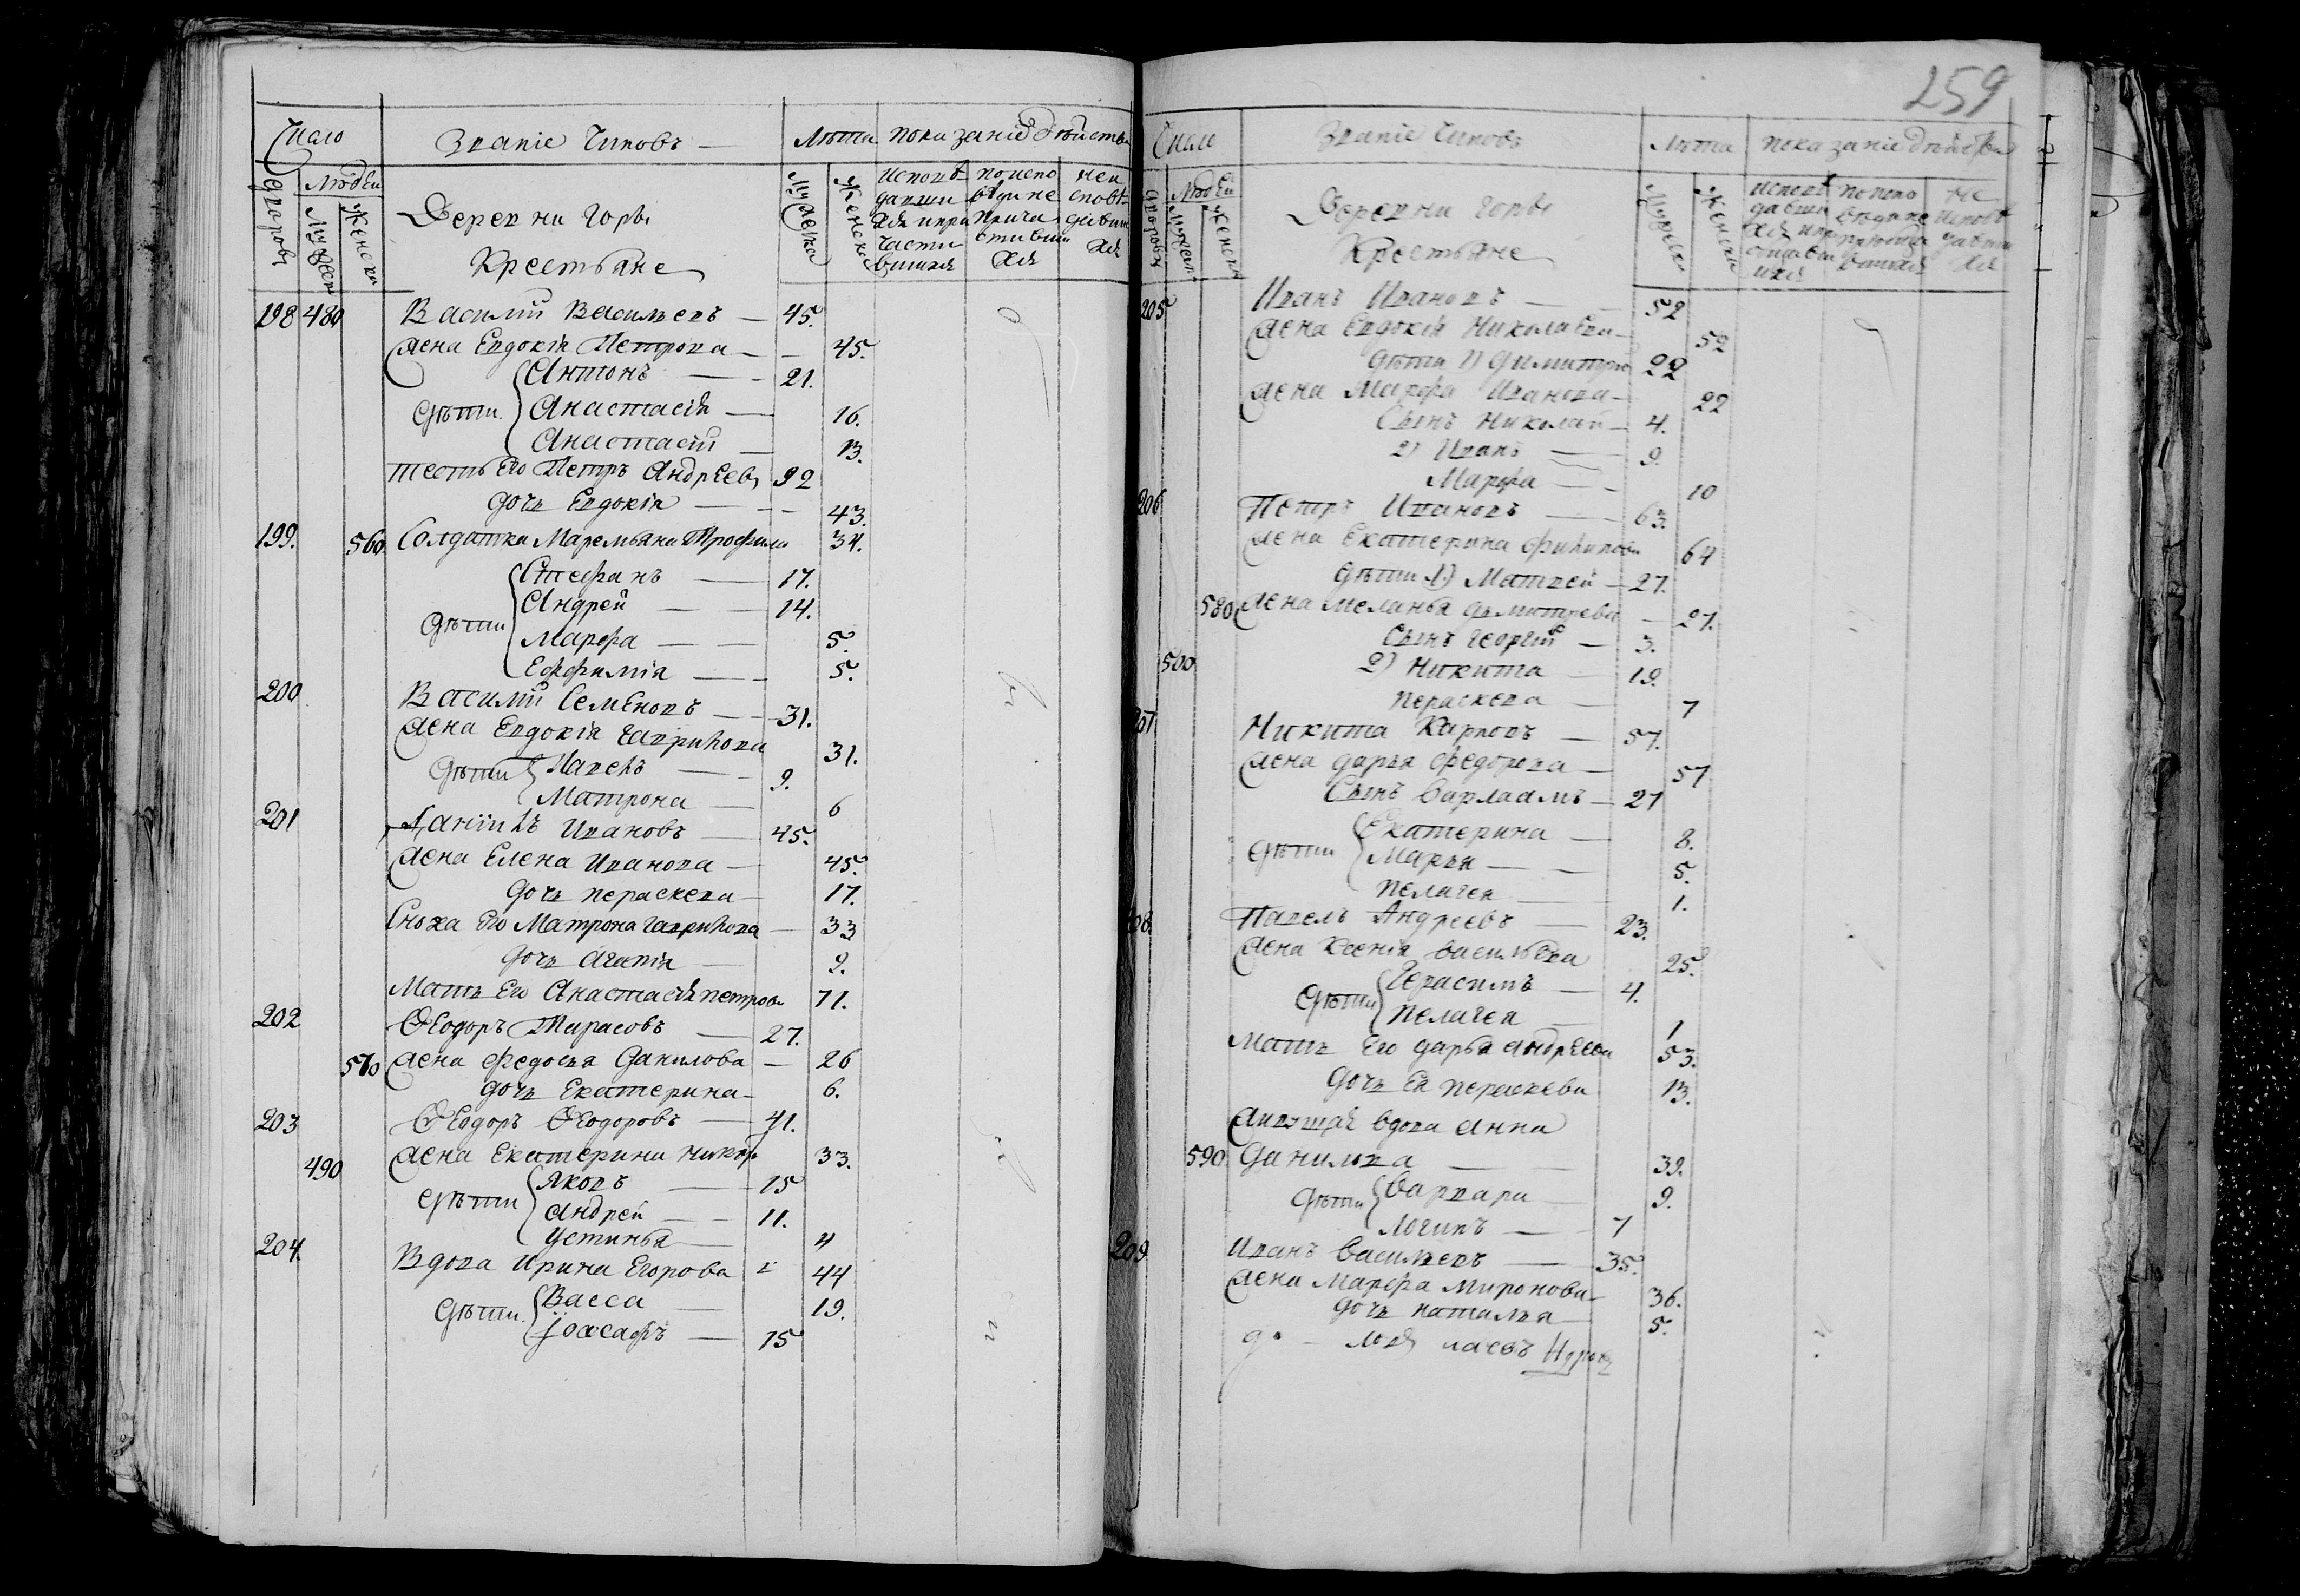 Число
Званіе Чиновъ
Лѣта
показаніе дѣйства
дворовъ
Людей
Мужеск
Женска
Деревни Горы
Крестьяне
Мужеска
Женска
испов
давши
ся и при
части
вшихся
по испо
вѣди не
прича
стивши
ся
не и
сповѣ
давши
ся
198 480 Василій Васильевъ — 45.
Жена Евдокія Петрова — 45.
Дѣти Антонъ — 21.
Анастасія — 16.
Анастасіи — 13.
тесть Его Петръ Андреевъ 92
дочь Евдокія — 43.
199. 560 Солдатка Маремьяна Трофим 34.
Дѣти Стефанъ — 17.
Андрей — 14.
Марфа — 5.
Ефѳимія — 5.
200 Василій Семеновъ — 31.
Жена Евдокія Гаврилова 31.
Дѣти Павелъ — 9.
Матрона — 6
201 Даніилъ Ивановъ — 45.
Жена Елена Иванова — 45.
дочь Пераскева — 17.
Сноха Его Матрона Гаврилова — 33
дочь Агапія — 9.
Мать Его Анастасія петров 71.
202 Ѳеодоръ Тарасовъ — 27.
570 Жена Федосья Данилова — 26
дочь Екатерина — 6.
203 Ѳеодоръ Ѳеодоровъ — 41.
490 Жена Екатерина Никиф 33.
Дѣти Яковъ — 15
Андрей — 11.
Устинья 4
204. Вдова Ирина Егорова 44
Дѣти Васса — 19.
Іоасафъ — 15
259
Число
Званіе Чиновъ
Лѣта
показаніе дѣйства
дворовъ
Людей
Мужеск
Женска
Деревни Горы
Крестьяне
Мужеска
Женска
205 Иванъ Ивановъ — 52
Жена Евдокія Николаева — 52
дѣти 1) Димитрій 22
Жена Марфа Иванова — 22
Сынъ Николай — 4.
2) Иванъ — 9.
Марфа — 10
206 Петръ Ивановъ — 63.
Жена Екатерина Филипова 64
дѣти 1) Матвей — 27.
580 Жена Меланья Дьмитрева — 27.
Сынъ Георгій — 3.
500 2) Никита 19.
Пераскева — 7
207 Никита Карповъ — 57.
Жена Дарья Федорова — 57
Сынъ Варлаамъ — 21
Дѣти Екатерина — 8.
Марья — 5.
Пелагея — 1.
208 Павелъ Андреевъ — 23.
Жена Ксенія Васильева 25.
Дѣти Герасимъ — 4.
Пелагея — 1
Мать Его Дарья Андреева 53.
Дочь Ея Пераскева 13.
Живущая вдова Анна
590 Данилова — 39.
Дѣти Варвара — 9.
Логинъ — 7
209 Иванъ Васильевъ — 35.
Жена Марфа Миронова — 36.
дочь Наталья — 5.